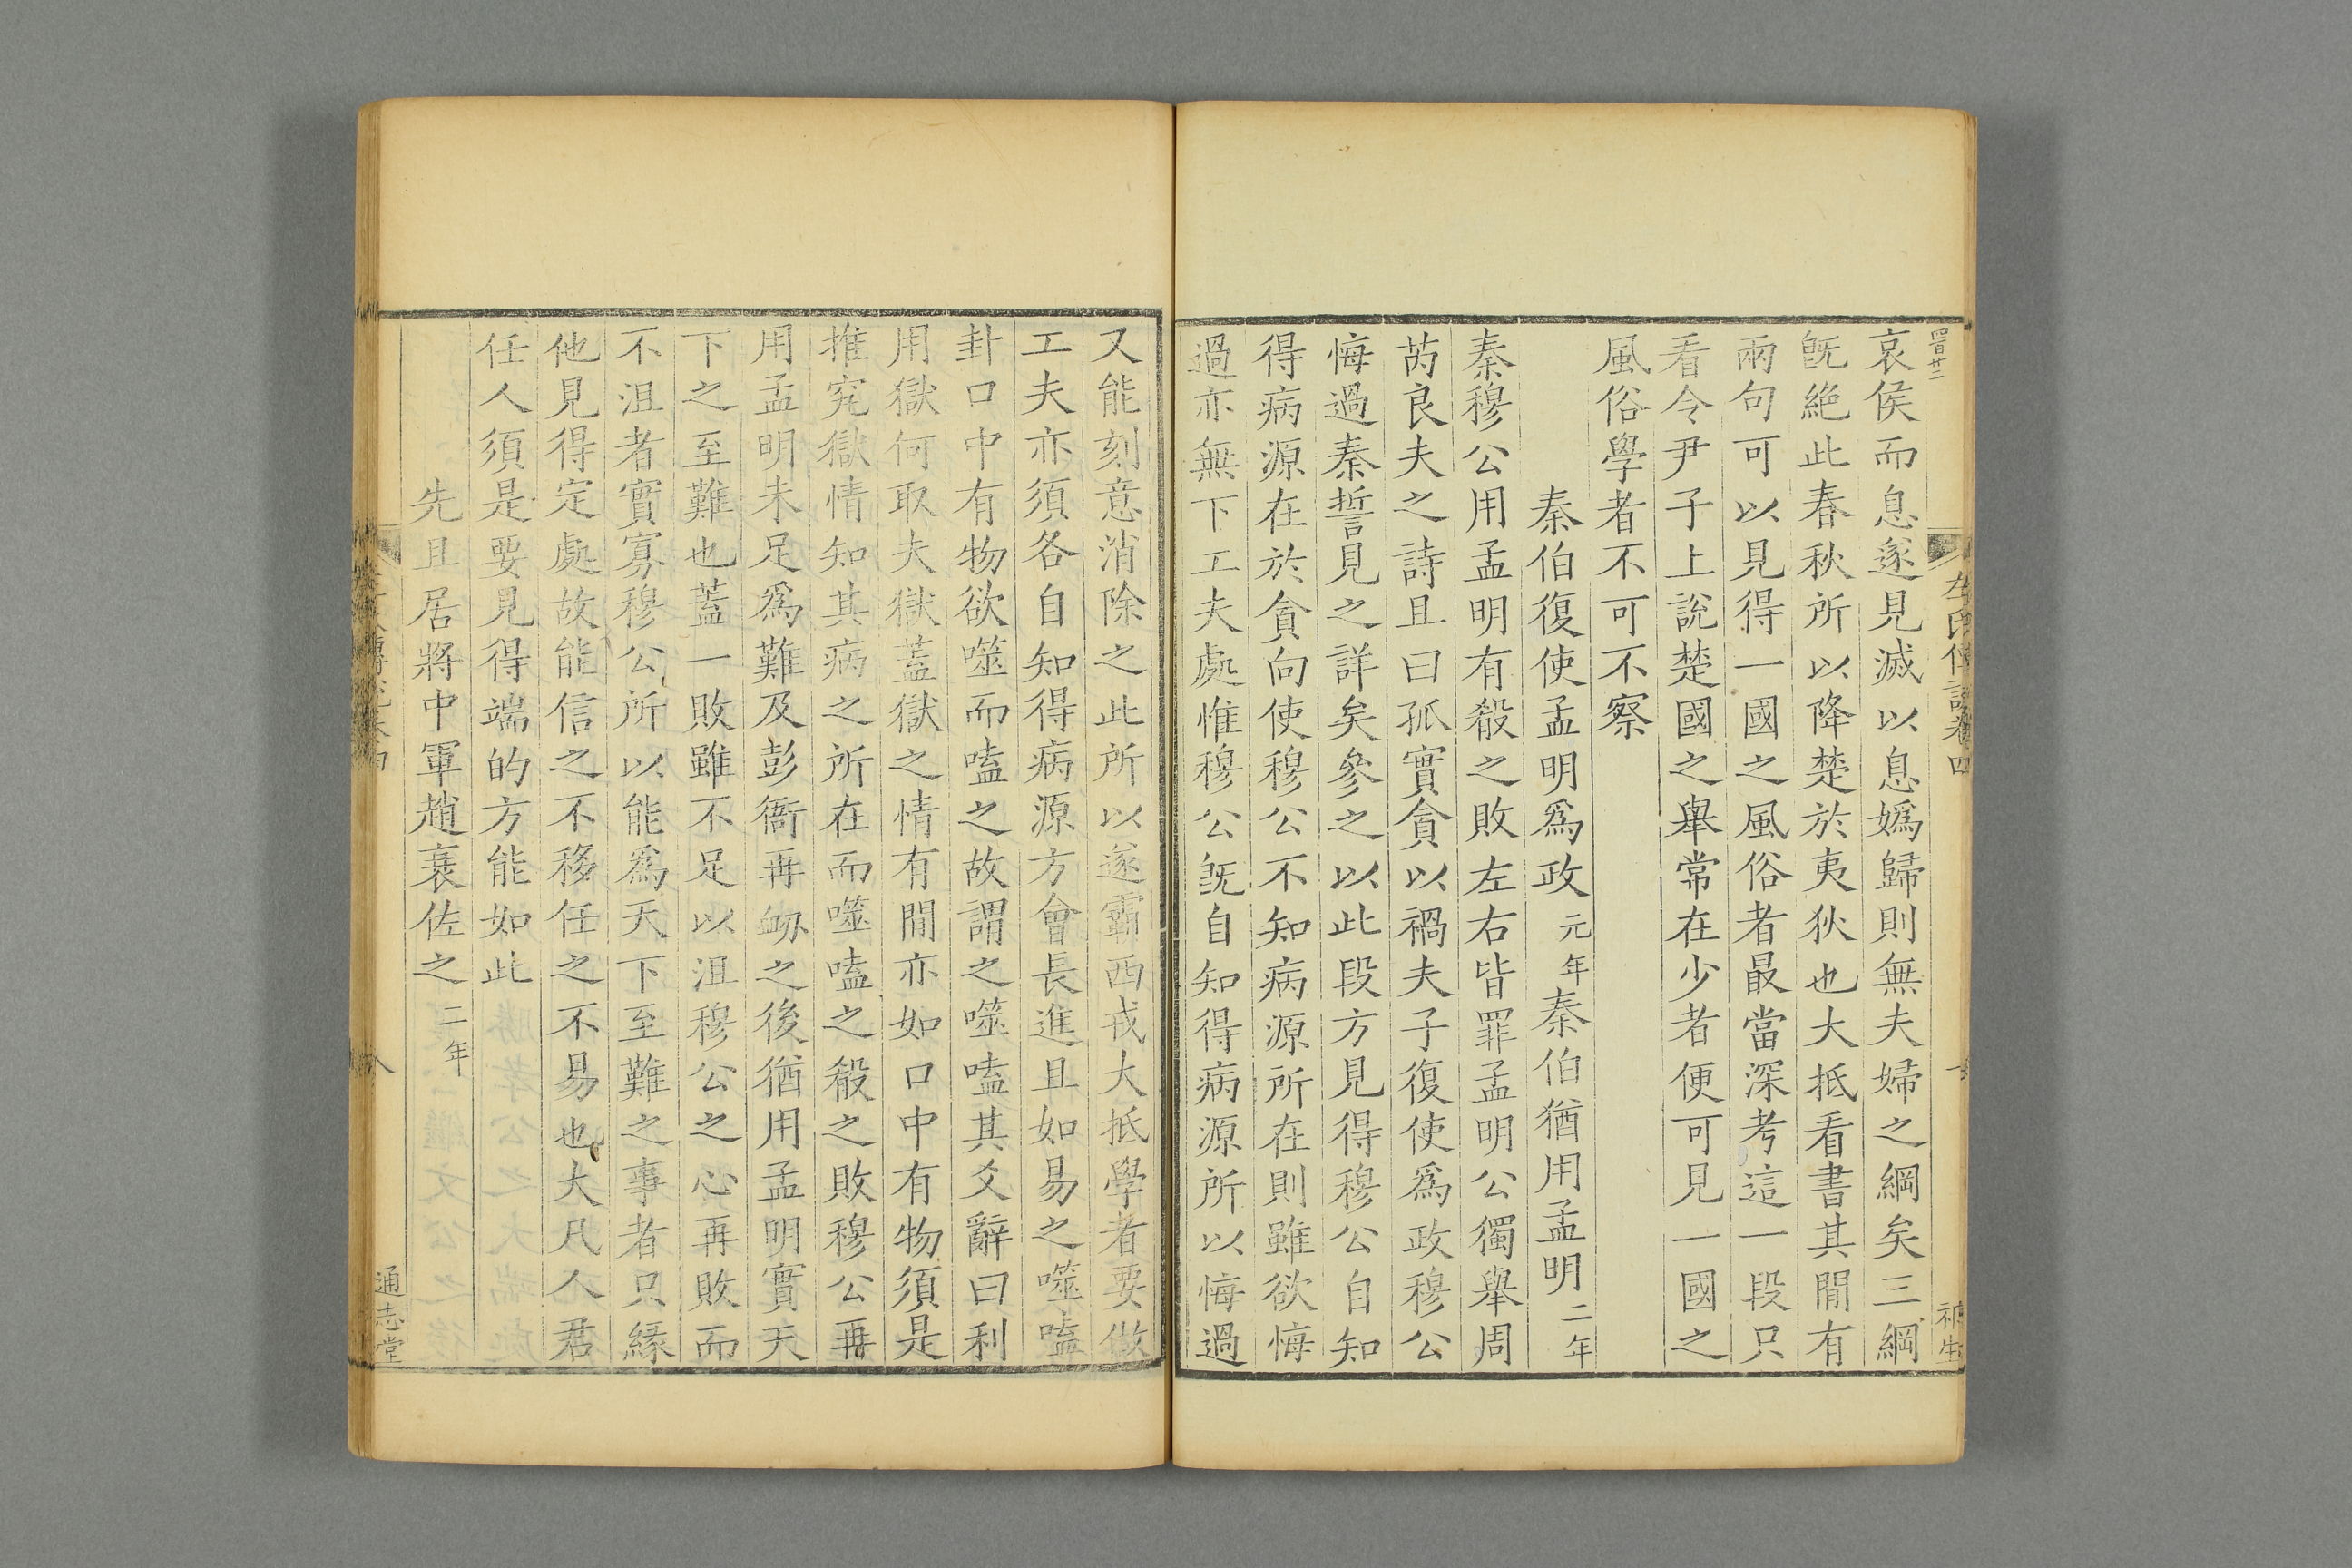 哀侯而息遂見滅以息嬀歸則無夫婦之綱矣三綱
旣絶此春秋所以降楚於夷狄也大抵看書其間有
兩句可以見得一國之風俗者最當深考這一段只
看令尹子上說楚國之舉常在少者便可見一國之
風俗學者不可不察
秦伯復使孟明爲政元年秦伯猶用孟明二年
秦穆公用孟明有殽之敗左右皆罪孟明公獨舉周
芮良夫之詩且曰孤實貪以禍夫子復使爲政穆公
悔過秦誓見之詳矣參之以此段方見得穆公自知
得病源在於貪向使穆公不知病源所在則雖欲悔
過亦無下工夫處惟穆公旣自知得病源所以悔過
又能刻意消除之此所以遂霸西戎大抵學者要做
工夫亦須各自知得病源方會長進且如易之噬嗑
卦口中有物欲噬而嗑之故謂之噬嗑其爻辭曰利
用獄何取夫獄蓋獄之情有間亦如口中有物須是
推究獄情知其病之所在而噬嗑之殽之敗穆公再
用孟明未足爲難及彭衙再衂之後猶用孟明實天
下之至難也蓋一敗雖不足以沮穆公之心再敗而
不沮者實寡穆公所以能爲天下至難之事者只緣
他見得定處故能信之不移任之不易也大凡人君
任人須是要見得端的方能如此
先且居將中軍趙衰佐之二年
左氏傳說卷四
通志堂